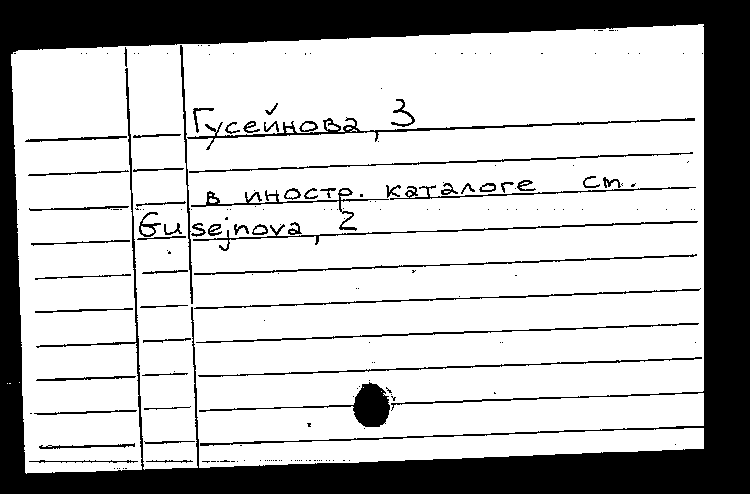 Гусейнова, З
в иностр. каталоге см.
Gusejnova, Z